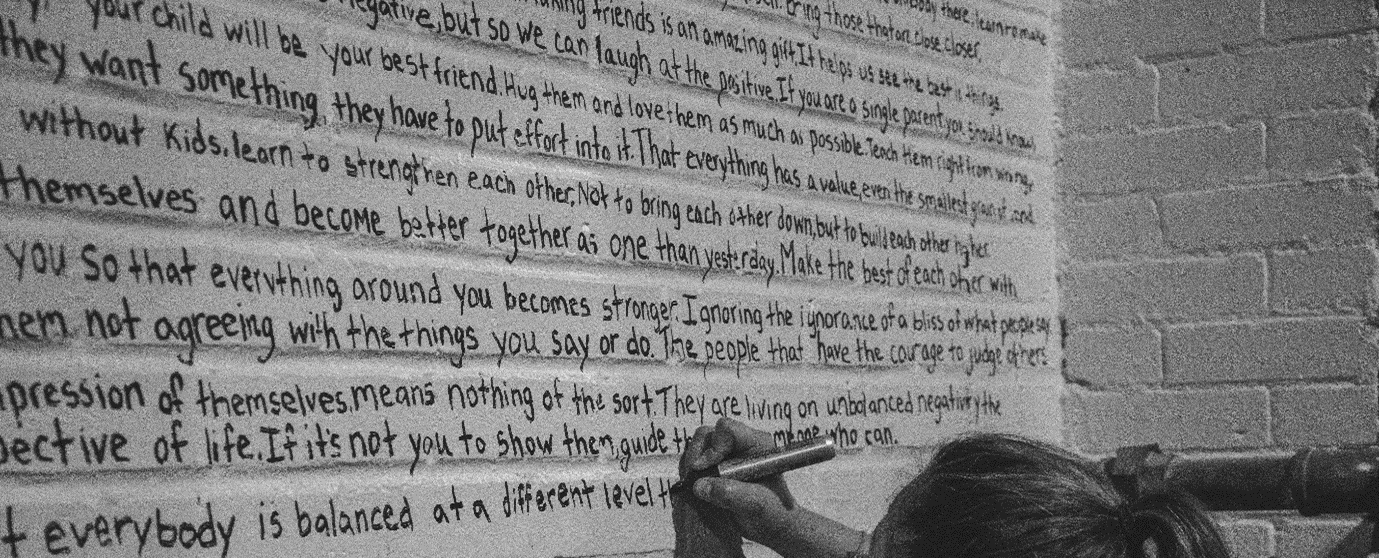 body there. learn to make
bring those that are close closer.
your child will be negative, but so we can laugh at the positive. If you are a single parent you should know,
friends is an amazing gift. It helps us see the best in things.
they want something, they have to put effort into it. That everything has a value, even the smallest
your best friend. Hug them and love them as much as possible. Teach them right from wrong,
without Kids. learn to strengthen each other, Not to bring each other down, but to build each other higher
themselves and become better together as one than yesterday. Make the best of each other with
you so that everything around you becomes stronger. Ignoring the ignorance of a bliss of what people say
not agreeing with the things you say or do. The people that have the courage to judge others
pression of themselves. means nothing of the sort. They are living on unbalanced negativity the
pective of life. If it's not you to show them, guide who can.
everybody is balanced at a different level